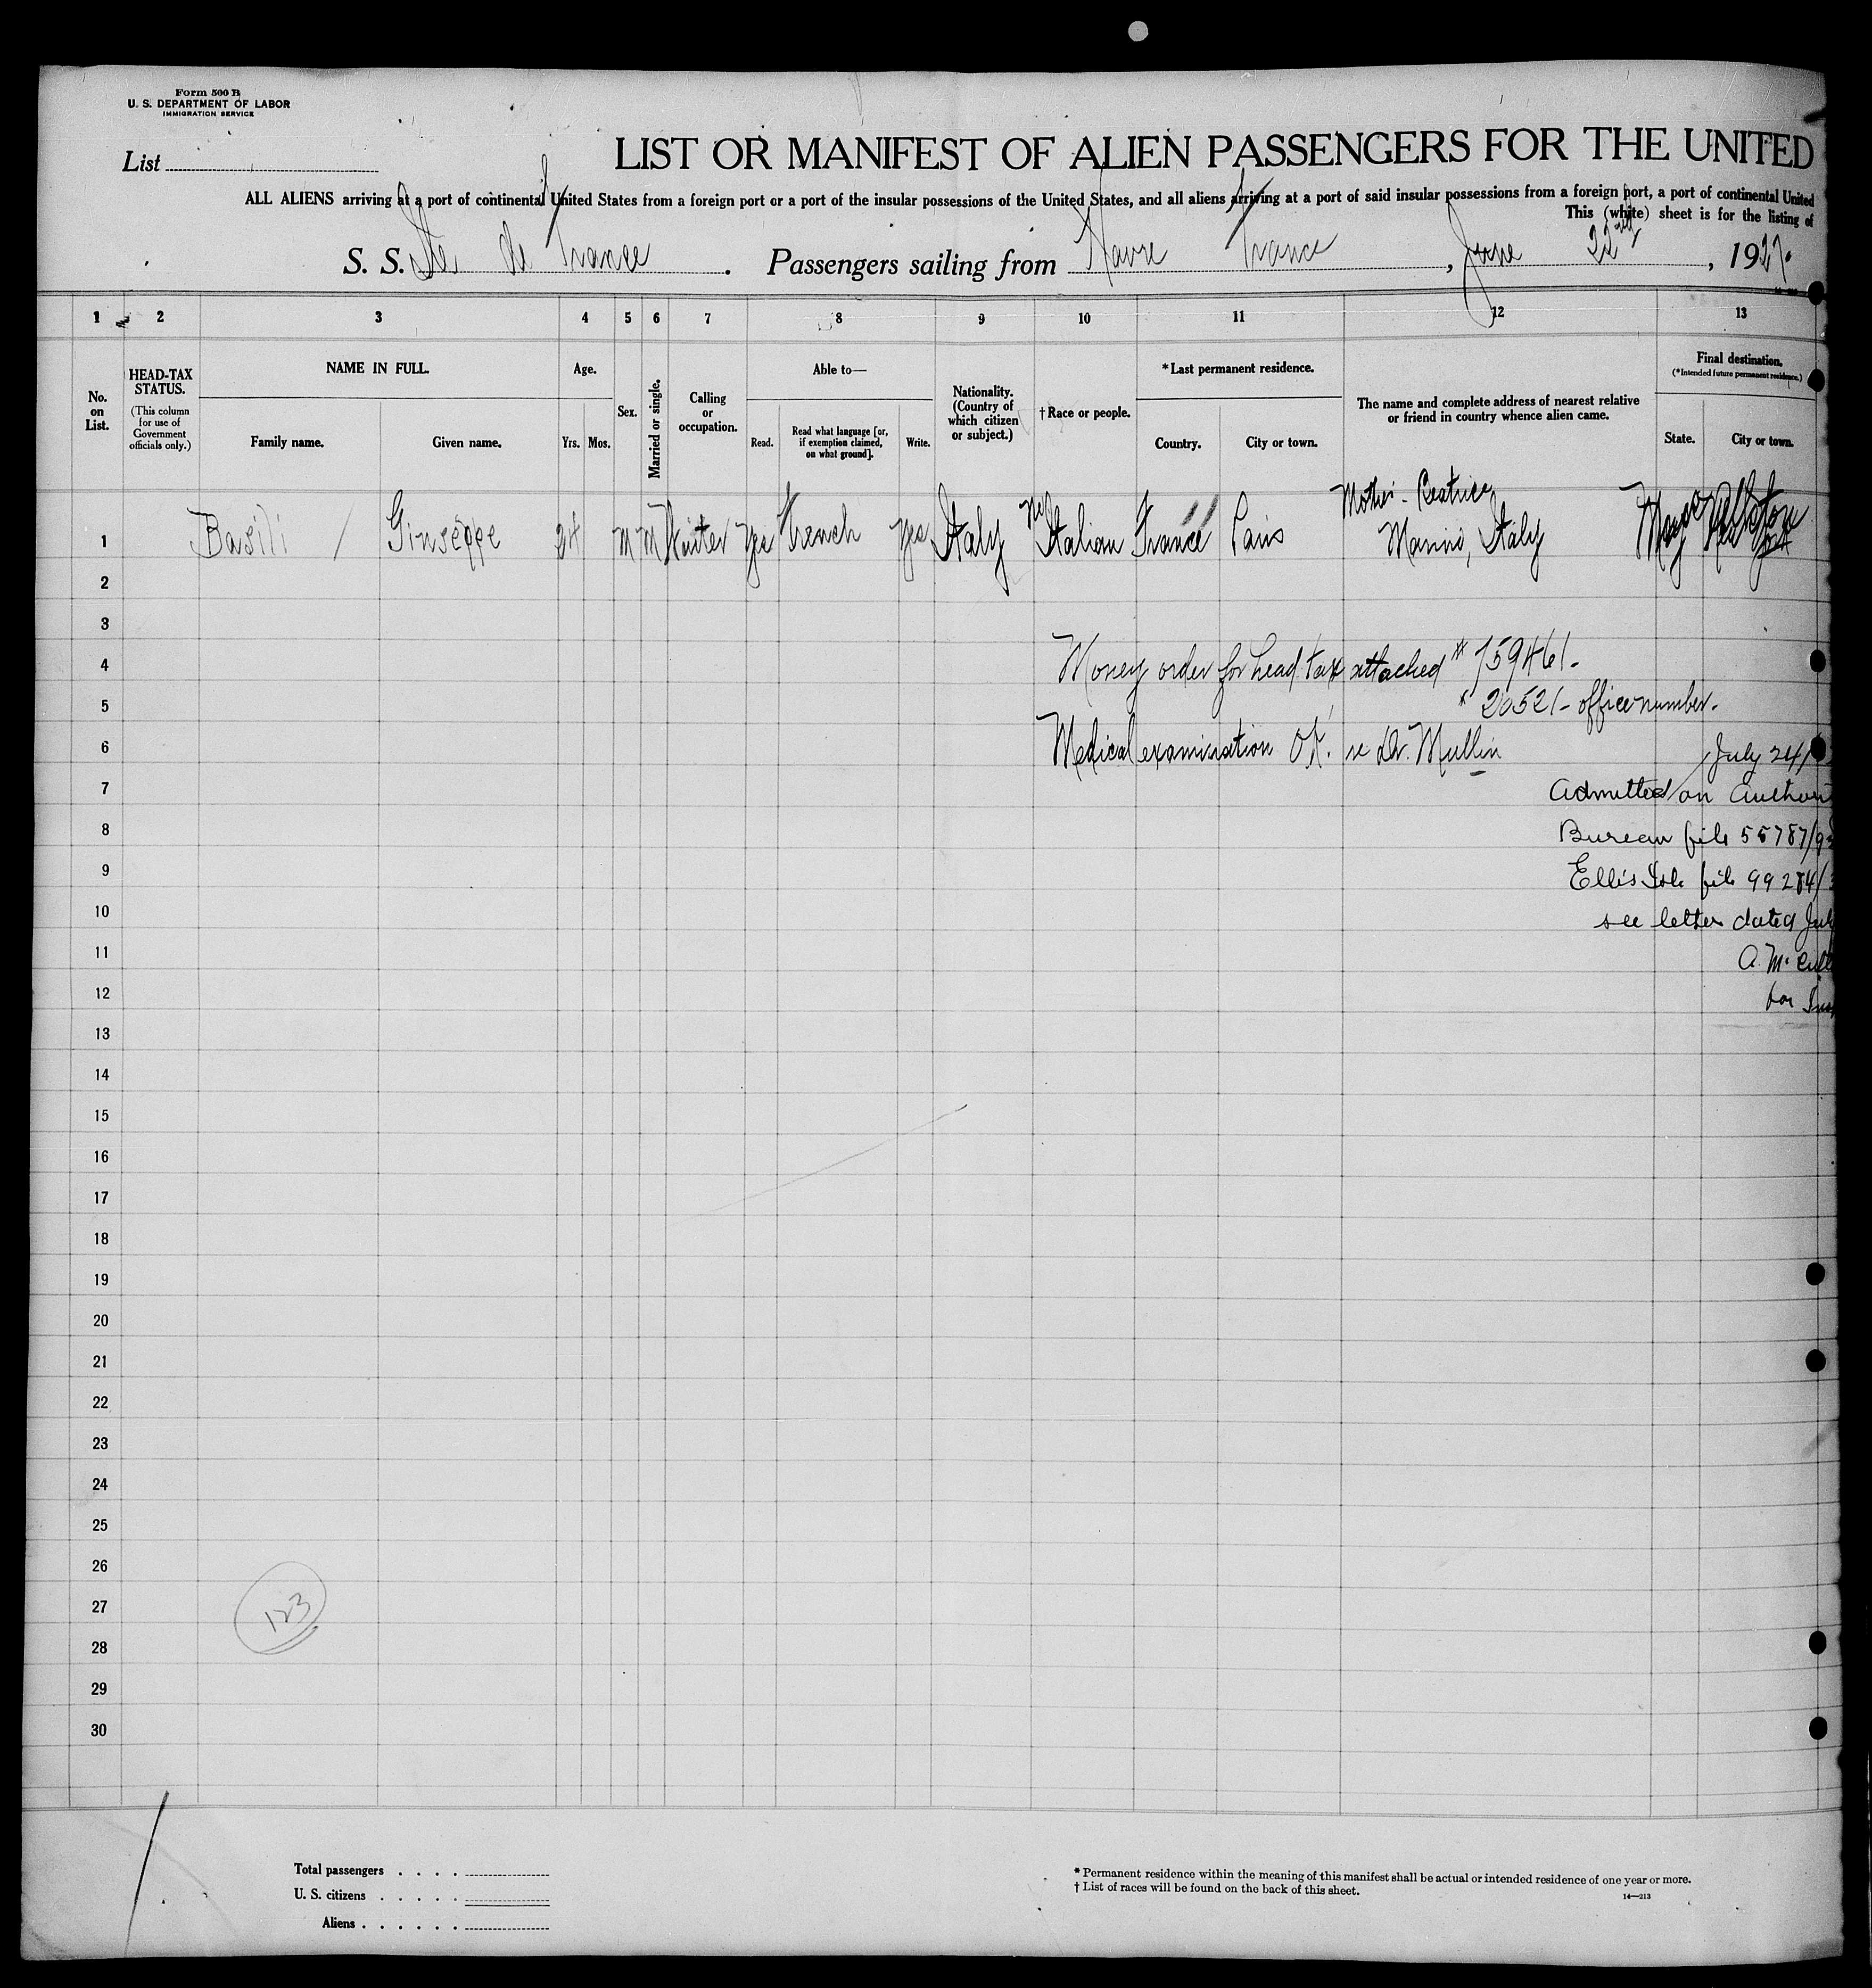 Form 500 B
U. S. DEPARTMENT OF LABOR
IMMIGRATION SERVICE
List
LIST OR MANIFEST OF ALIEN PASSENGERS FOR THE UNITED
ALL ALIENS arriving at a port of continental United States from a foreign port or a port of the insular possessions of the United States, and all aliens arriving at a port of said insular possessions from a foreign port, a port of continental United
This (white) sheet is for the listing of
S. S. Ile de France . Passengers sailing from Havre France , June 22nd , 1927.
1 2 3 4 5 6 7 8 9 10 11 12 13
No. on List.
HEAD-TAX STATUS.
(This column for use of Government officials only.)
NAME IN FULL.
Family name. Given name.
Age.
Yrs. Mos.
Sex.
Married or single.
Calling or occupation.
Able to—
Read. Read what language [or, if exemption claimed, on what ground]. Write.
Nationality. (Country of which citizen or subject.)
† Race or people.
* Last permanent residence.
Country. City or town.
The name and complete address of nearest relative or friend in country whence alien came.
Final destination.
(* Intended future permanent residence.)
State. City or town.
Mother - Beatrice
1 Basili / Giuseppe 24 M M Waiter Yes French Yes Italy Italian France Paris Marino, Italy
2
3
4 Money order for head tax attached # 759461-
5 # 20521- office number.
6 Medical examination OK. Dr. Mullin
July 24/
7 Admitted on Author
8 Bureau file 55787/
9 Ellis Isle file 99284/
10 see letter dated July
11 A. Mc
12 for
13
14
15
16
17
18
19
20
21
22
23
24
25
26
27
123
28
29
30
Total passengers . . . .
U. S. citizens . . . . .
Aliens . . . . . .
* Permanent residence within the meaning of this manifest shall be actual or intended residence of one year or more.
† List of races will be found on the back of this sheet.
14—213